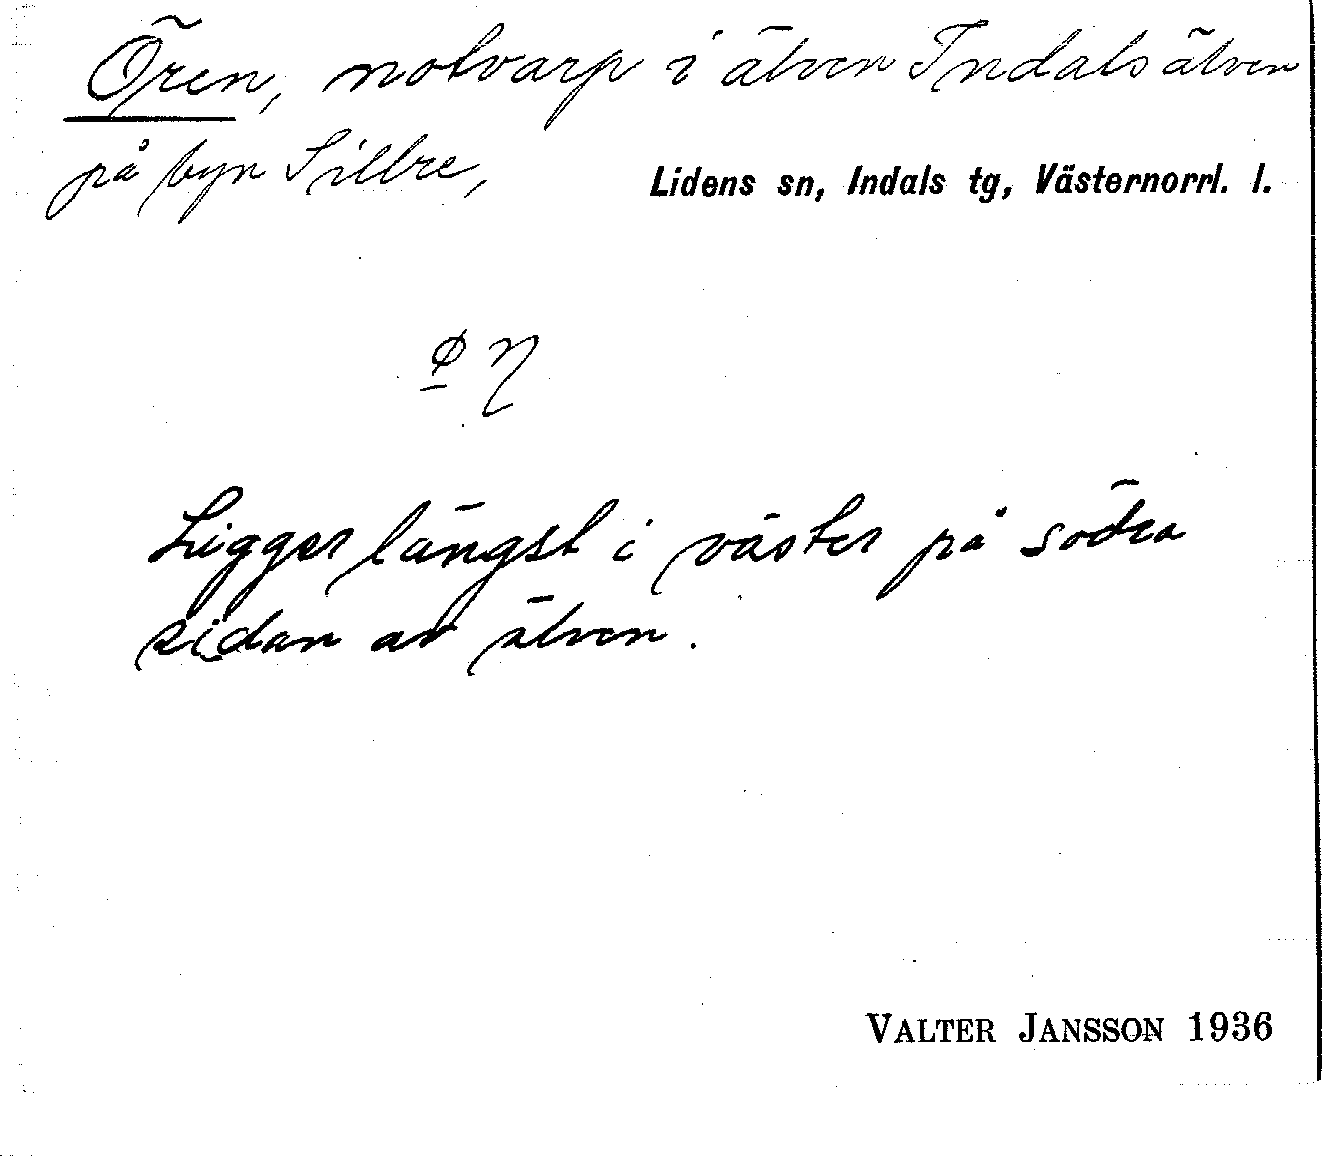 Ören, notvarp i älven Indalsälven
på byn Sillre,
Lidens sn, Indals tg, Västernorrl. l.
Ligger längst i väster på södra
sidan av älven.
VALTER JANSSON 1936